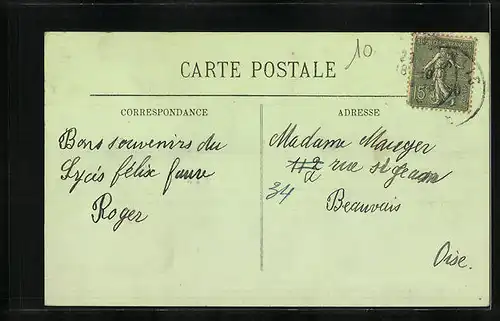 10
CARTE POSTALE
CORRESPONDANCE
Bons souvenirs du
Lycés félix faure
Roger
ADRESSE
Madame Mauger
112 rue st Jean
2
34
Beauvais
Oise.
15